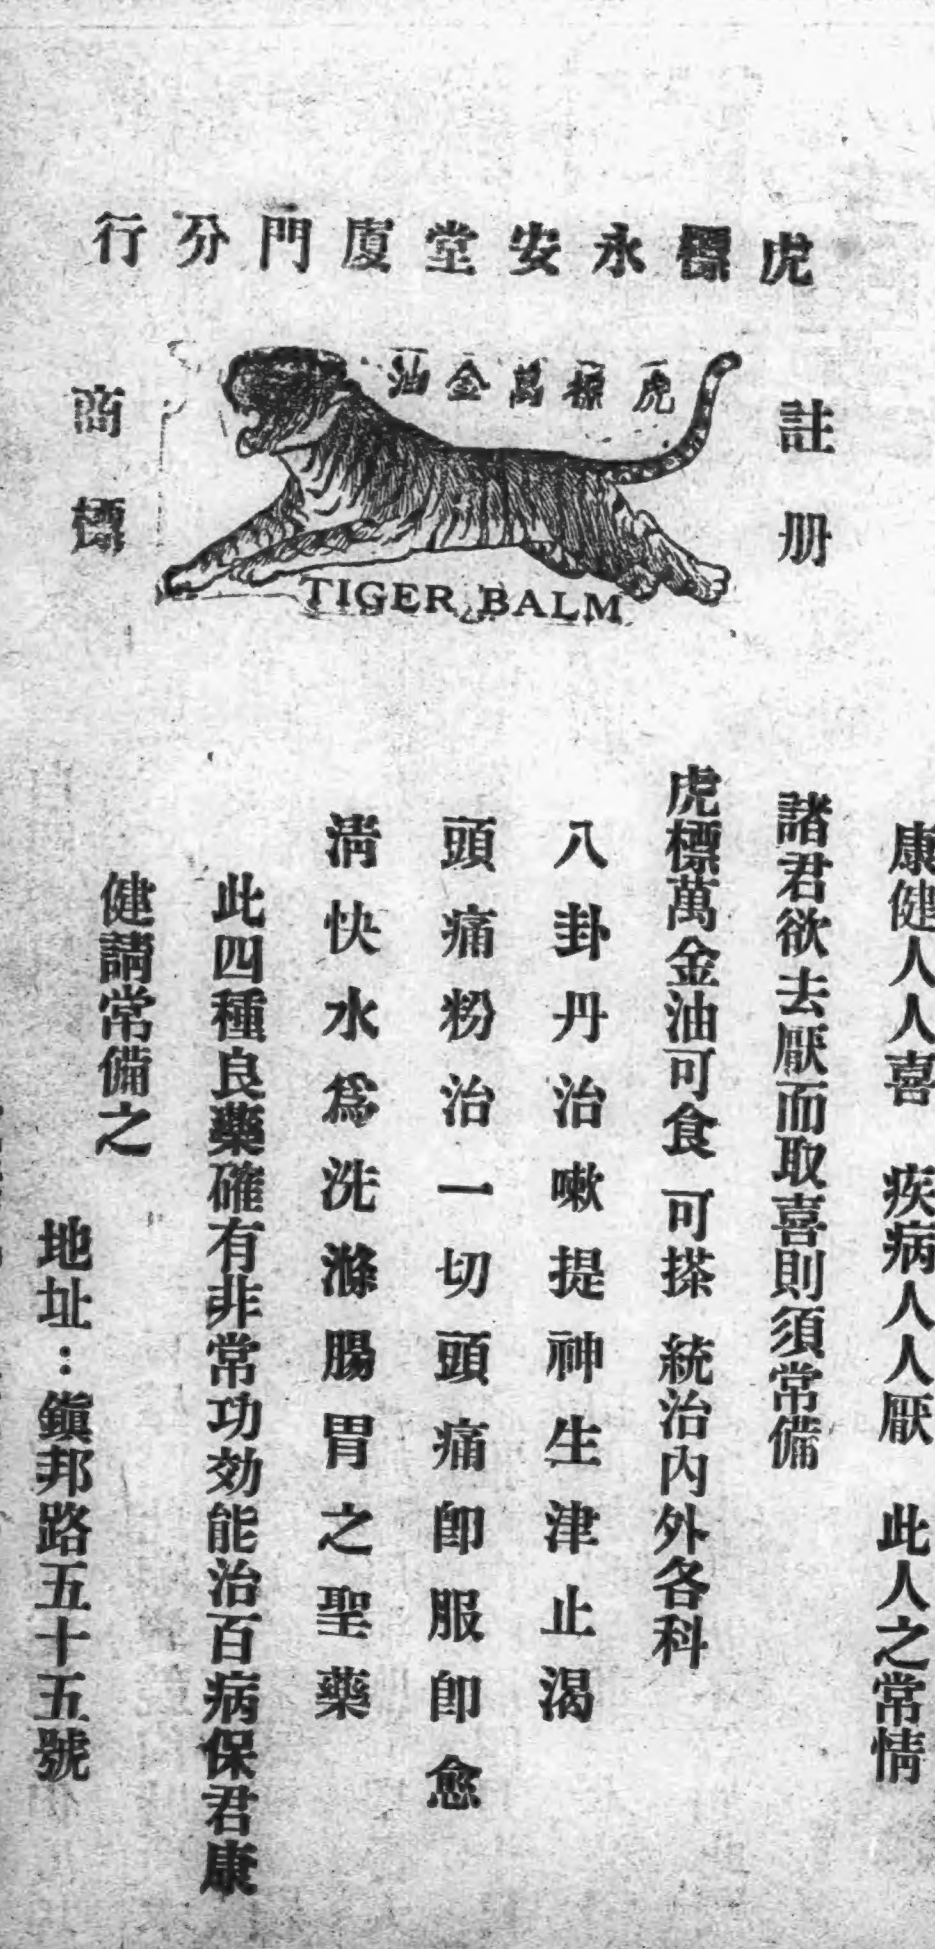 虎標永安堂廈門分行
註册
商標
虎標萬金油
TIGER BALM
康健人人喜　疾病人人厭　此人之常情
諸君欲去厭而取喜則須常備
虎標萬金油可食　可搽　統治內外各科
八卦丹治嗽提神生津止渴
頭痛粉治一切頭痛卽服卽愈
淸快水爲洗滌腸胃之聖藥
此四種良藥確有非常功効能治百病保君康
健請常備之
地址：鎭邦路五十五號